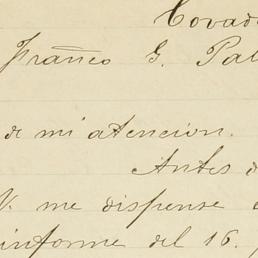 Covad
Franco G. Pal
de mi atencion.
Antes d
V. me dispense
informe del 16.